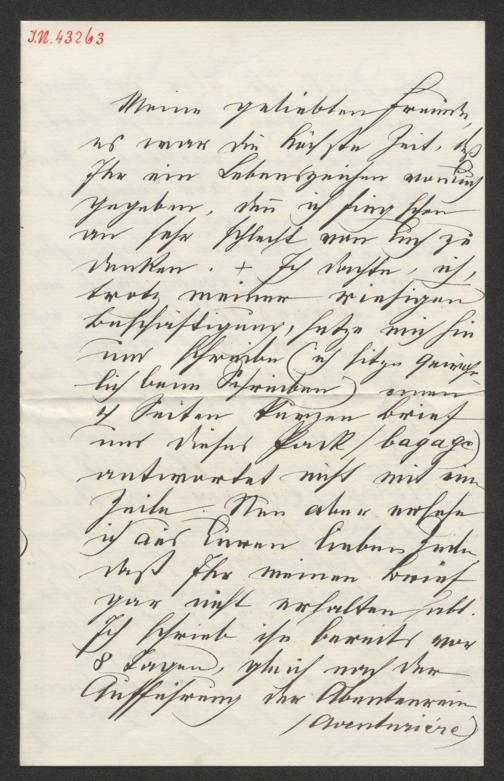 J.N. 43263
Meine geliebten Freunde,
es war die höchste Zeit, daß
Ihr ein Lebenszeichen von Euch
gegeben, denn ich fing schon
an sehr schlecht von Euch zu
denken. + Ich dachte, ich,
trotz meiner riesigen
Beschäftigung, setze mich hin
und schreibe (ich sitze gewöhn-
lich beim Schreiben) einen
4 Seiten kurzen Brief
und dieses Pack (bagage)
antwortet nicht mit einer
Zeile. Nun aber ersehe
ich aus Euren lieben Zeilen
daß Ihr meinen Brief
gar nicht erhalten habt.
Ich schrieb ihn bereits vor
8 Tagen, gleich nach der
Aufführung der Abenteurerin
(Aventurière)